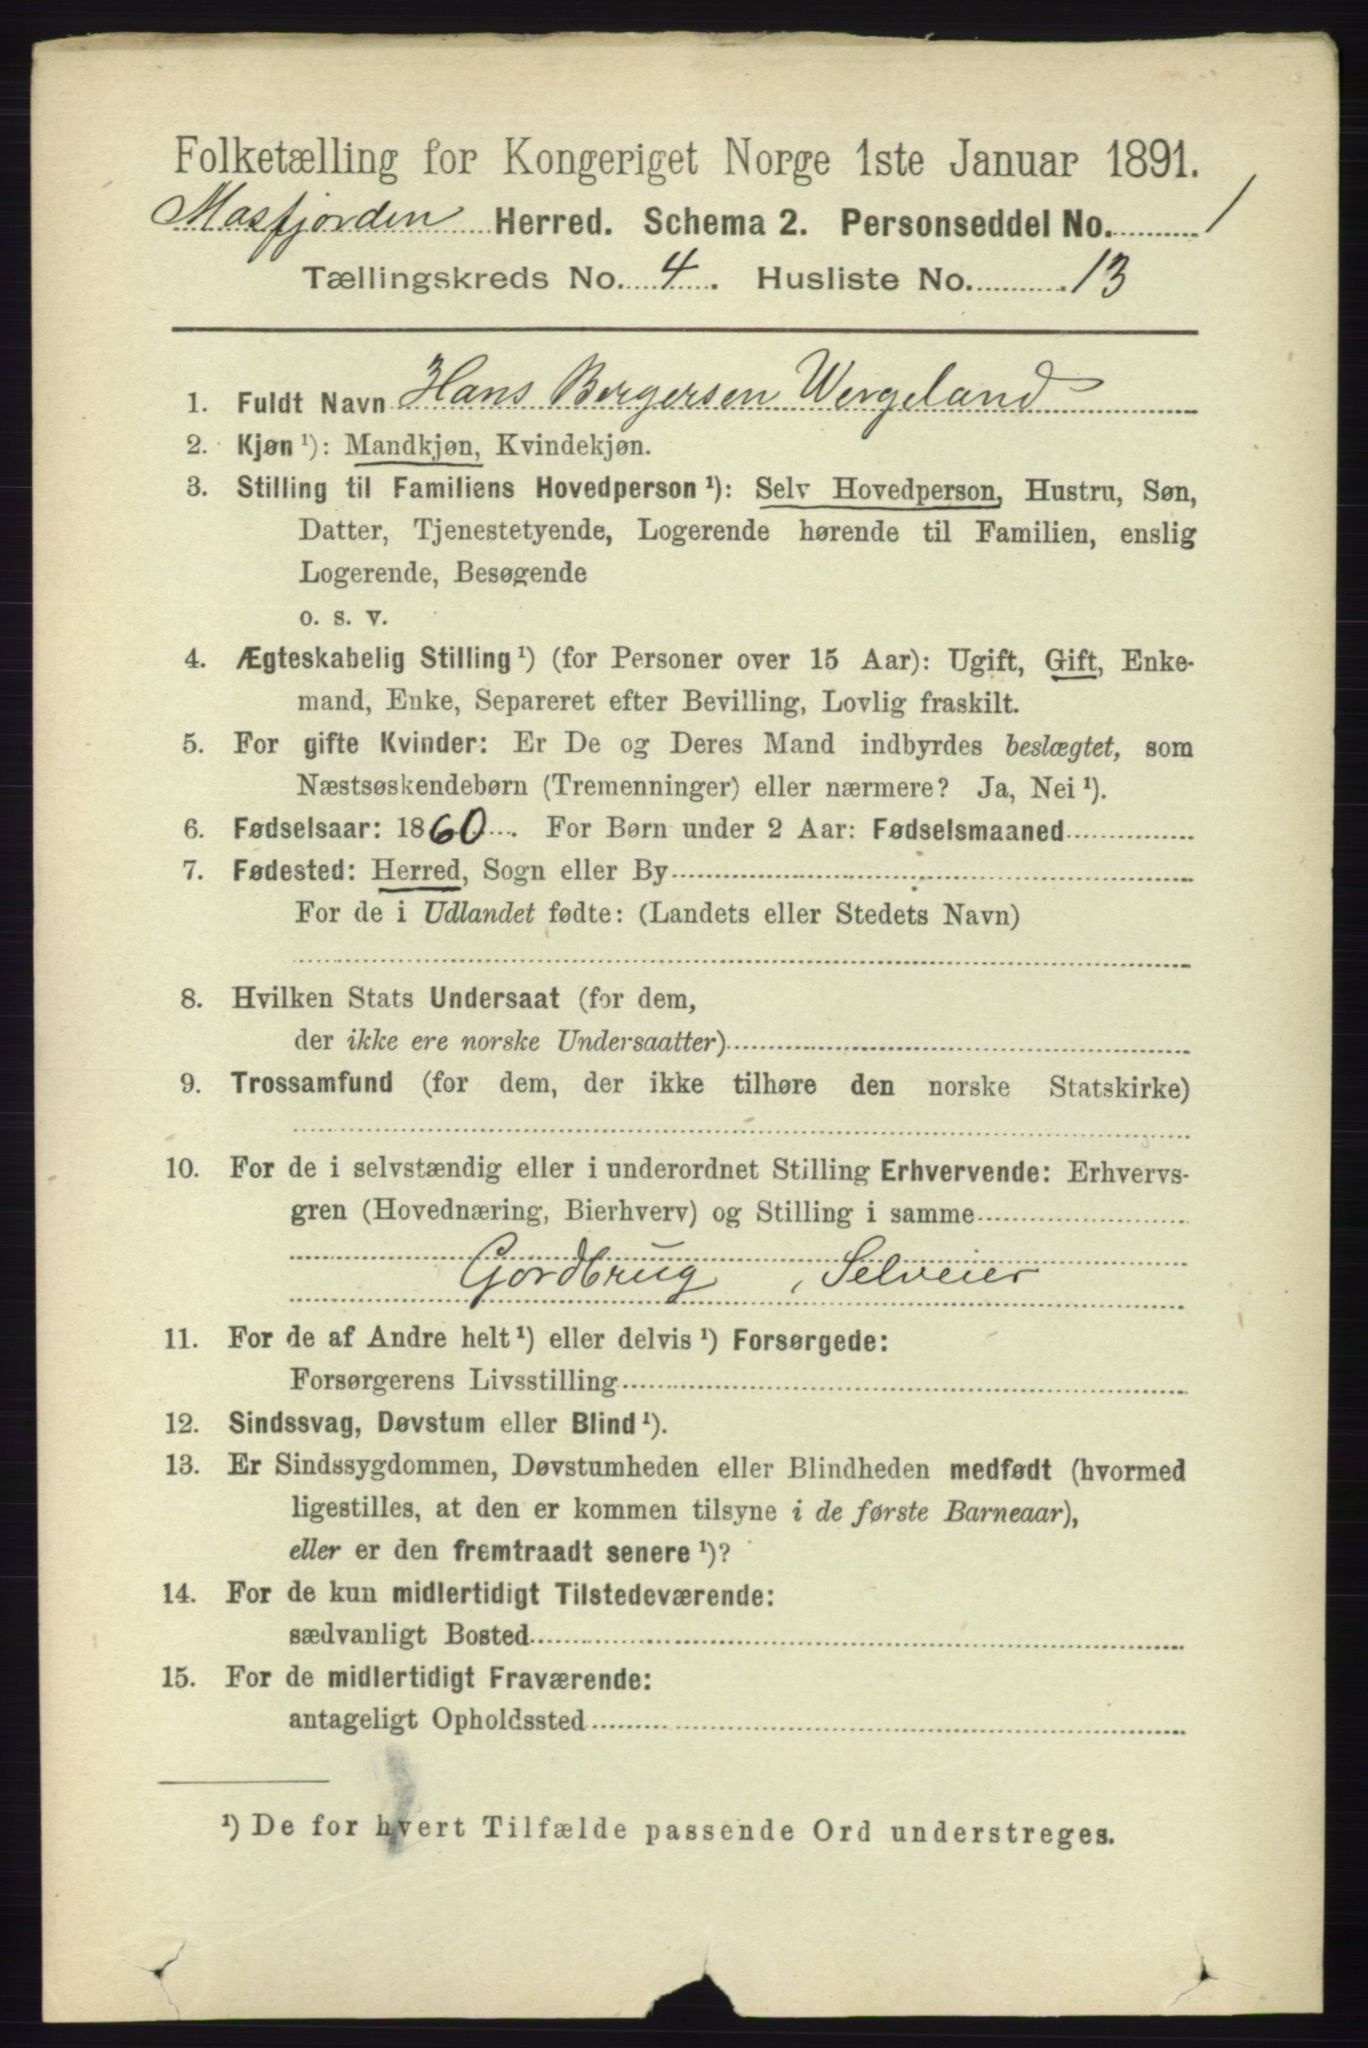 Folketælling for Kongeriget Norge 1ste Januar 1891.
Masfjorden Herred. Schema 2. Personseddel No. 1
Tællingskreds No. 4. Husliste No. 13
1. Fuldt Navn Hans Bergersen Wergeland
2. Kjøn¹): Mandkjøn, Kvindekjøn.
3. Stilling til Familiens Hovedperson¹): Selv Hovedperson, Hustru, Søn,
Datter, Tjenestetyende, Logerende hørende til Familien, enslig
Logerende, Besøgende
o. s. v.
4. Ægteskabelig Stilling¹) (for Personer over 15 Aar): Ugift, Gift, Enke-
mand, Enke, Separeret efter Bevilling, Lovlig fraskilt.
5. For gifte Kvinder: Er De og Deres Mand indbyrdes beslægtet, som
Næstsøskendebørn (Tremenninger) eller nærmere? Ja, Nei¹).
6. Fødselsaar: 1860. For Børn under 2 Aar: Fødselsmaaned
7. Fødested: Herred, Sogn eller By
For de i Udlandet fødte: (Landets eller Stedets Navn)
8. Hvilken Stats Undersaat (for dem,
der ikke ere norske Undersaatter)
9. Trossamfund (for dem, der ikke tilhøre den norske Statskirke)
10. For de i selvstændig eller i underordnet Stilling Erhvervende: Erhvervs-
gren (Hovednæring, Bierhverv) og Stilling i samme
Gordbrug, Selveier
11. For de af Andre helt¹) eller delvis¹) Forsørgede:
Forsørgerens Livsstilling
12. Sindssvag, Døvstum eller Blind¹).
13. Er Sindssygdommen, Døvstumheden eller Blindheden medfødt (hvormed
ligestilles, at den er kommen tilsyne i de første Barneaar),
eller er den fremtraadt senere¹)?
14. For de kun midlertidigt Tilstedeværende:
sædvanligt Bosted
15. For de midlertidigt Fraværende:
antageligt Opholdssted
¹) De for hvert Tilfælde passende Ord understreges.